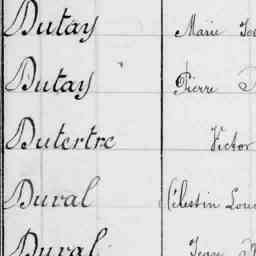 Dutay Marie
Dutay Pierre
Dutertre Victor
Duval Célestin
Duval Jean